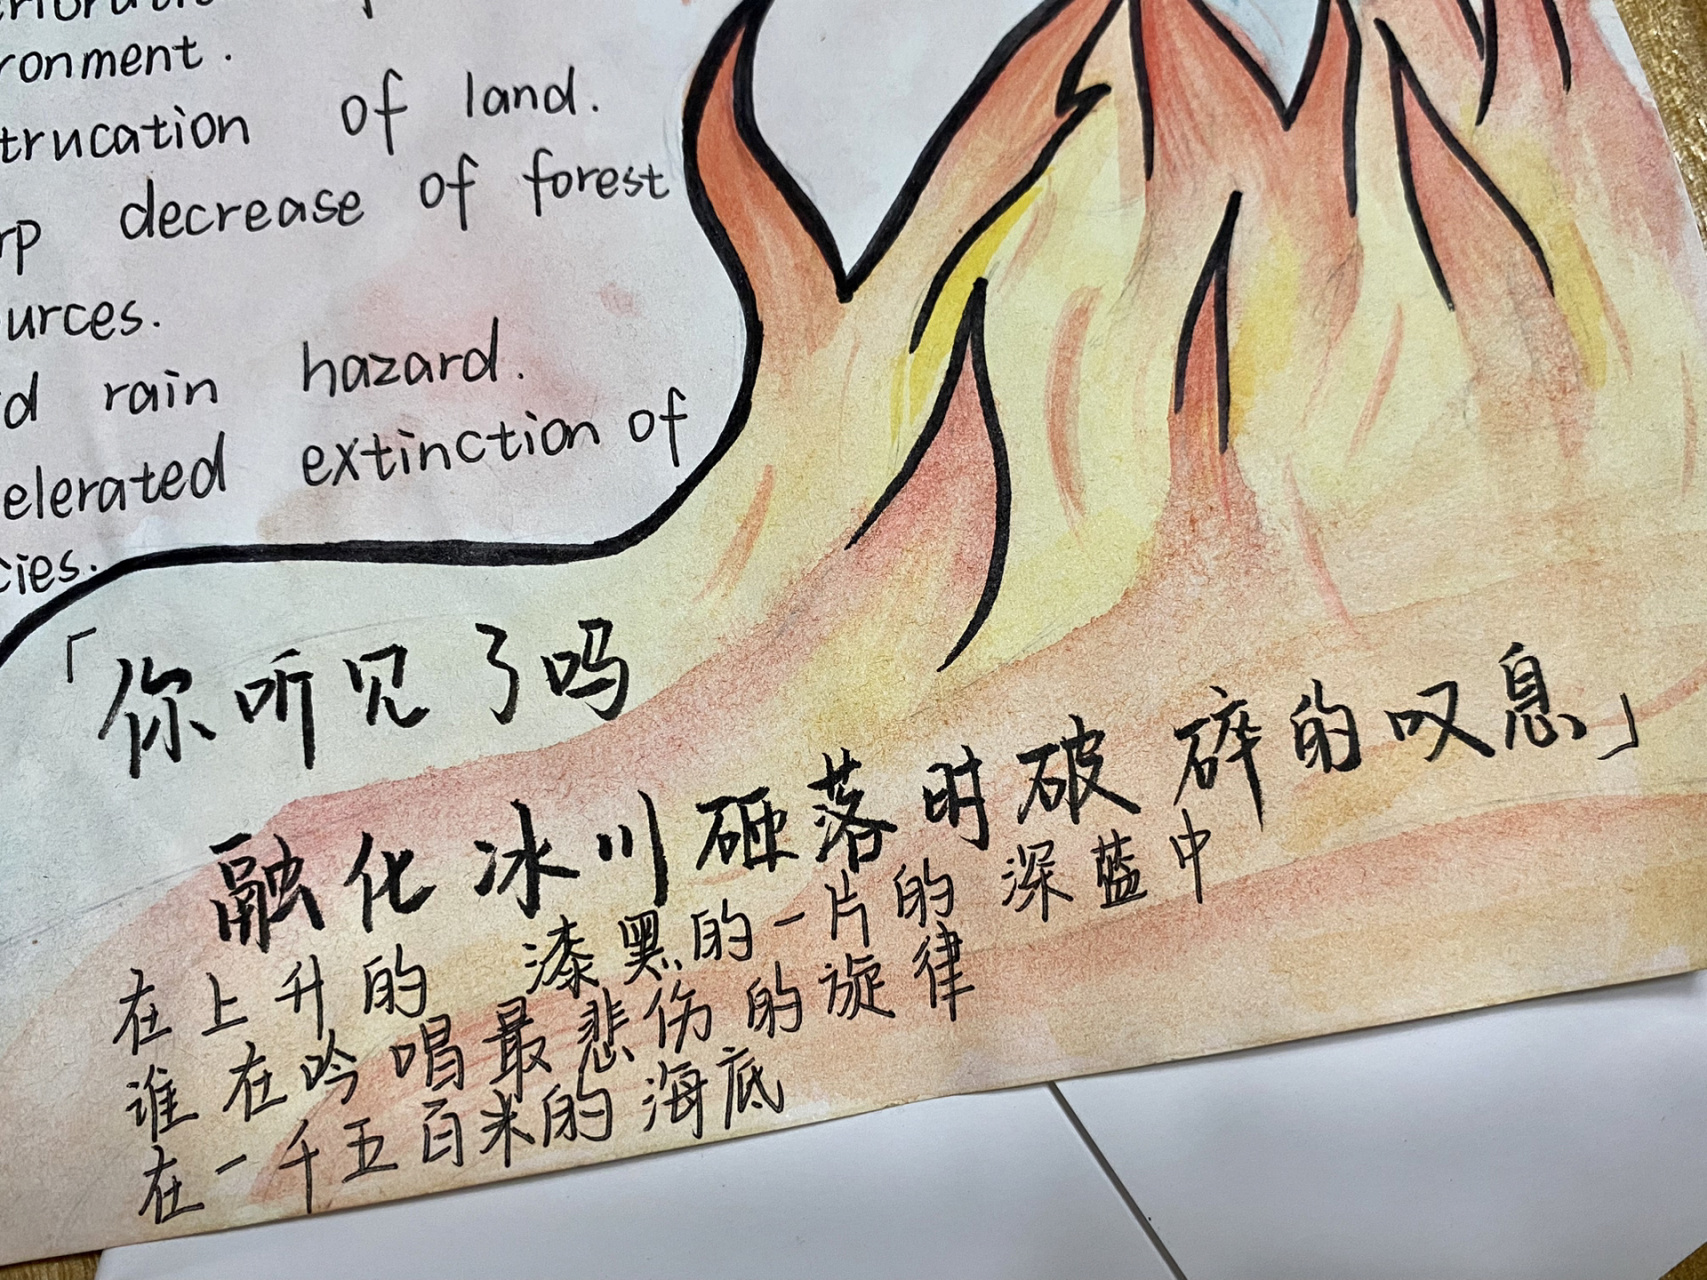 ronment.
trucation of land.
rp decrease of forest
urces.
d rain hazard.
elerated extinction of
cies.
「你听见了吗
融化冰川砸落时破碎的叹息」
在上升的 漆黑的一片的深蓝中
谁在吟唱最悲伤的旋律
在一千五百米的海底